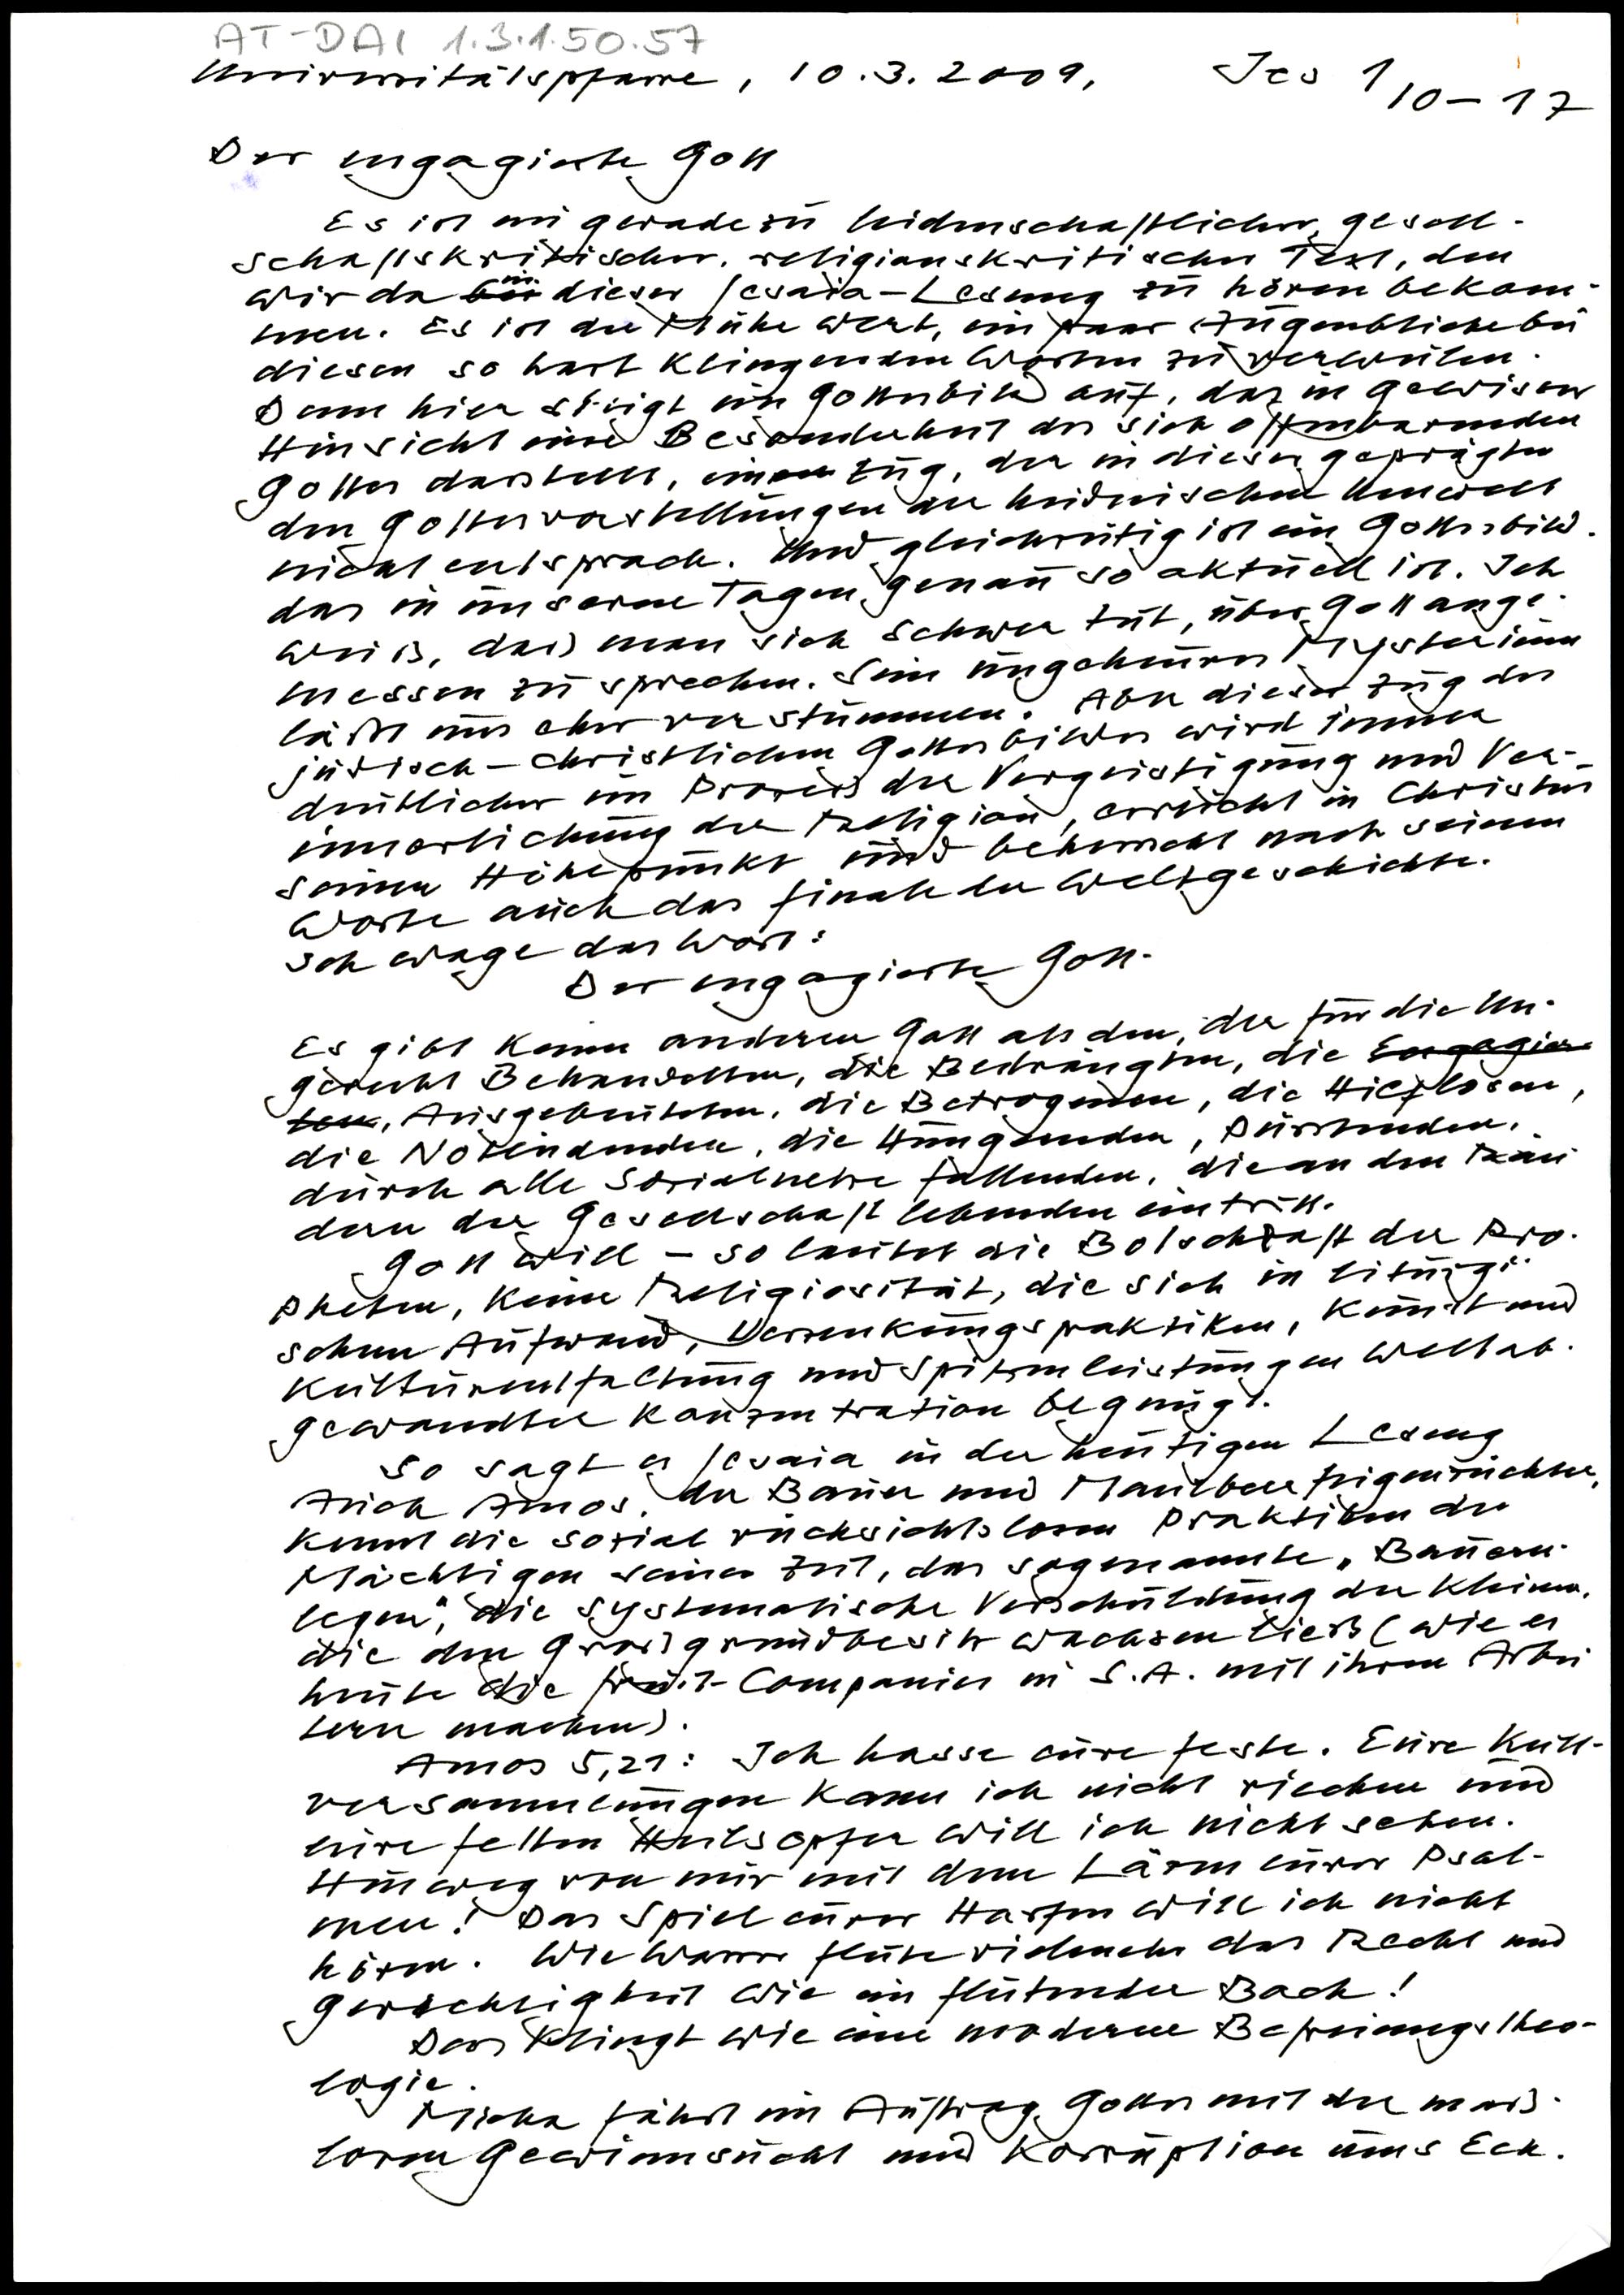 AT-DAI 1.3.1.50.57
Universitätspfarre, 10.3.2009, Jes 1 10–17
Der engagierte Gott
Es ist ein geradezu leidenschaftlicher, gesell-
schaftskritischer, religionskritischer Text, den
wir da in dieser Jesaia-Lesung zu hören bekom-
men. Es ist der Mühe wert, ein paar Augenblicke bei
diesen so hart klingenden Worten zu verweilen.
Denn hier steigt ein Gottesbild auf, das in gewisser
Hinsicht eine Besonderheit des sich offenbarenden
Gottes darstellt, einen Zug, der in dieser geprägten
den Gottesvorstellungen der heidnischen Umwelt
nicht entsprach. Und gleichzeitig ist ein Gottesbild.
das in unseren Tagen genau so aktuell ist. Ich
weiß, daß man sich schwer tut, über Gott ange-
messen zu sprechen. Sein ungeheures Mysterium
läßt uns eher verstummen. Aber dieser Zug des
jüdisch-christlichen Gottesbildes wird immer
deutlicher im Prozeß der Vergeistigung und Ver-
innerlichung der Religion, erreicht in Christus
seinen Höhepunkt und beherrscht nach seinem
Worte auch das Finale der Weltgeschichte.
Ich wage das Wort:
Der engagierte Gott.
Es gibt keinen anderen Gott als den, der für die Un-
gerecht Behandelten, die Bedrängten, die Engagier-
ten, Ausgebeuteten, die Betrogenen, die Hilflosen,
die Notleidenden, die Hungernden, Dürstenden,
durch alle Sozialnetze fallenden, die an den Rän-
dern der Gesellschaft lebenden eintritt.
Gott will – so lautet die Botschaft der Pro-
pheten, keine Religiosität, die sich in liturgi-
schem Aufwand, Versenkungspraktiken, Kunst und
Kulturentfaltung und Spitzenleistungen weltab-
gewandter Konzentration begnügt.
So sagt es Jesaia in der heutigen Lesung
Auch Amos, der Bauer und Maulbeerfeigenzüchter,
kennt die sozial rücksichtslosen Praktiken der
Mächtigen seiner Zeit, das sogenannte „Bauern-
legen", die systematische Verschuldung der Kleinen,
die den Großgrundbesitz wachsen ließ (wie es
heute die fruit-Companies in S.A. mit ihren Arbei
tern machen).
Amos 5,21: Ich hasse eure Feste. Eure Kult-
versammlungen kann ich nicht riechen und
eure fetten Heilsopfer will ich nicht sehen.
Hinweg von mir mit dem Lärm eurer Psal-
men! Das Spiel eurer Harfen will ich nicht
hören. Wie Wasser flute vielmehr das Recht und
Gerechtigkeit wie ein flutender Bach!
Das klingt wie eine moderne Befreiungstheo-
logie.
Micha fährt im Auftrag Gottes mit der maß-
losen Gewinnsucht und Korruption ums Eck.